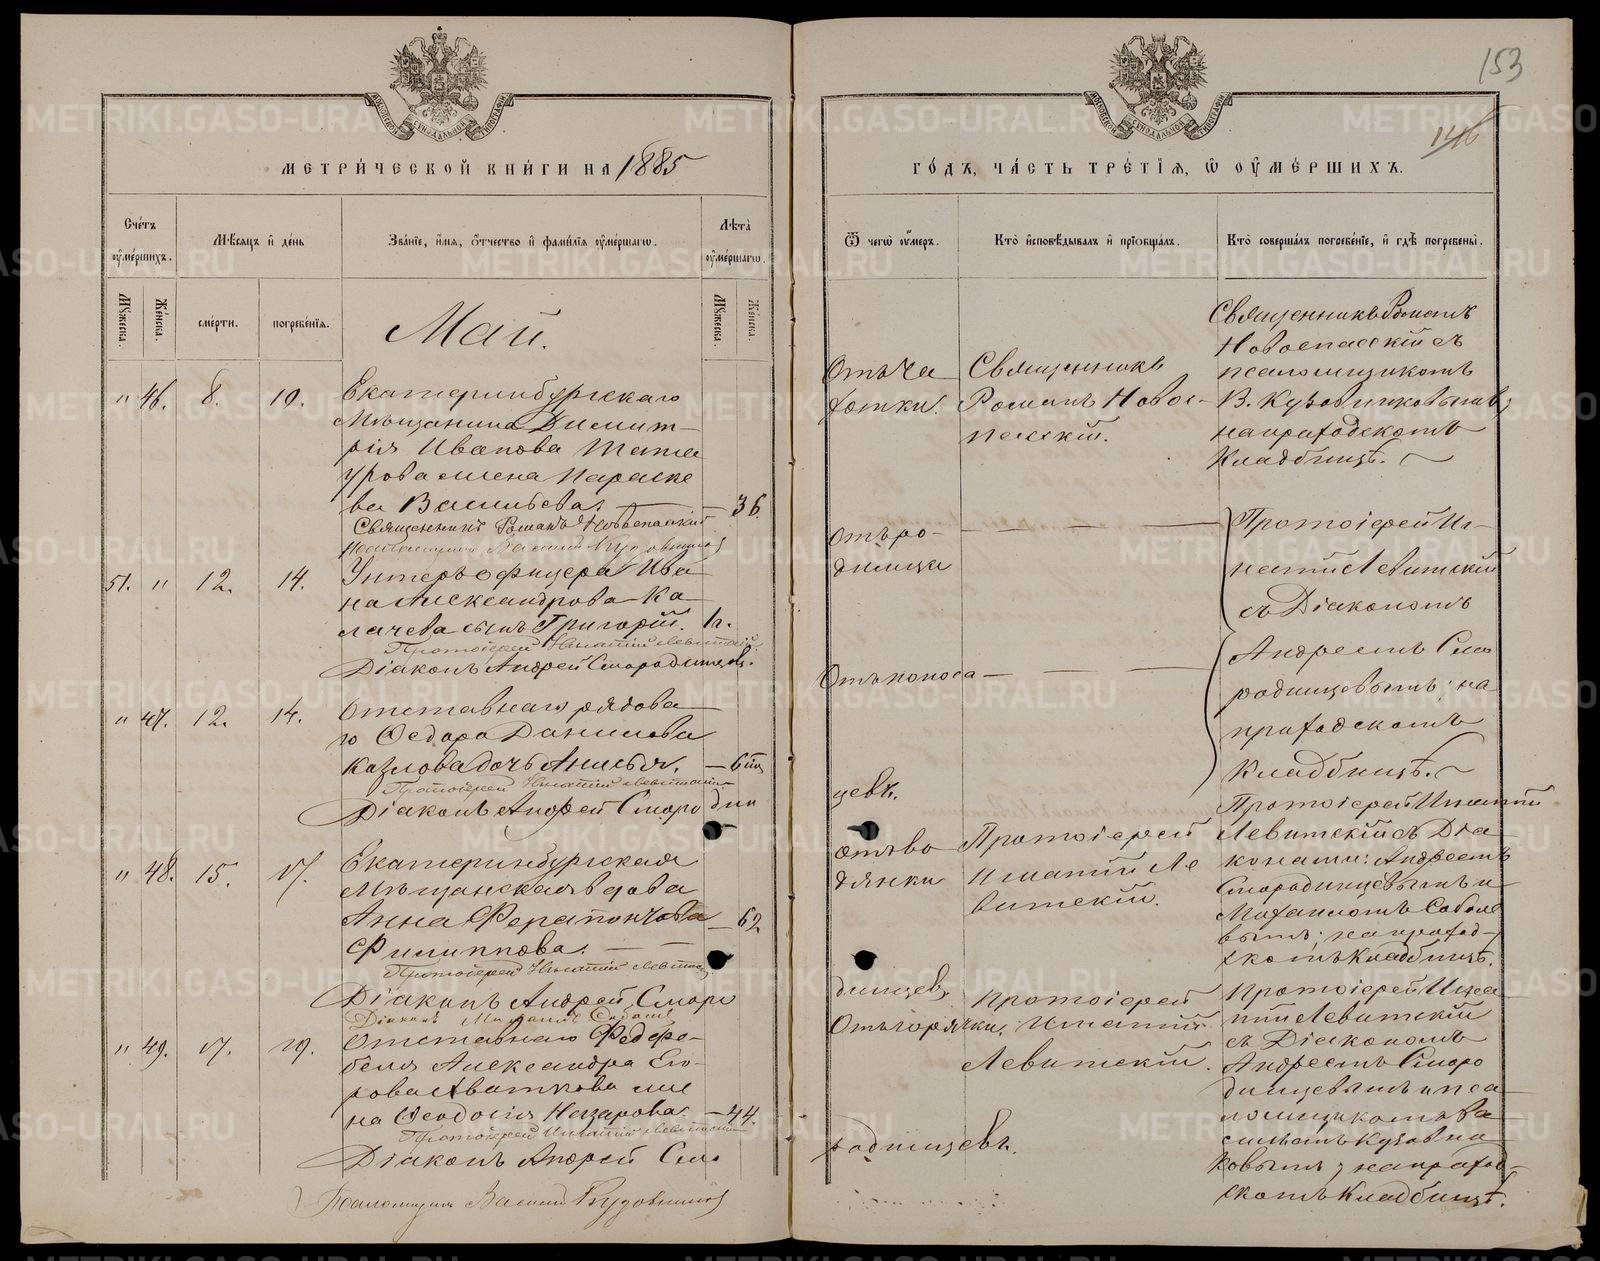 153
146
МЕТРИ́ЧЕСКОЙ КНИ́ГИ НА 1885
ГО́ДЪ, ЧА́СТЬ ТРЕ́ТІЯ, Ѿ ОУМЕ́РШИХЪ.
Сче́тъ оуме́ршихъ.
Мѣ́сяцъ и де́нь
Зва́ніе, и́мя, о́тчество и фами́лія оуме́ршагѡ.
Лѣ́та оуме́ршагѡ.
Мꙋ́жеска.
Же́нска.
сме́рти.
погребе́нія.
Мꙋ́жеска.
Же́нска.
Ѿ чегѡ̀ оу́меръ.
Кто̀ исповѣ́дывалъ и пріобща́лъ.
Кто̀ соверша́лъ погребе́ніе, и гдѣ̀ погребены̀.
Май.
" 46. 8. 10.
Екатеринбургскаго
Мѣщанина Димит-
рія Иванова
жена Параске
ва Васильева — 36.
Священникъ Романъ Новоспасскій
Псаломщикъ Василій
Отъ ча
хотки.
Священникъ
Романъ Новос-
пасскій.
Священникъ Романъ
Новоспасскій съ
псаломщикомъ
В. Кузовниковымъ;
на приходскомъ
кладбищѣ.
51. " 12. 14.
Унтеръ офицера Ива
на Александрова Ка
лачева сынъ Григорій. 1 г.
Протоіерей Игнатій Левитскій.
Діаконъ Андрей Смородинцевъ.
Отъ ро-
димца
Протоіерей Иг-
натій Левитскій
съ Діакономъ
Андреемъ Смо
родинцевымъ; на
приходскомъ
кладбищѣ.
" 47. 12. 14.
Отставнаго рядова
го Ѳедора Данилова
Казлова дочь — 6
Протоіерей Игнатій Левитскій
Діаконъ Андрей Сморо дин
цевъ.
Отъ поноса
" 48. 15. 17.
Екатеринбургская
Мѣщанская вдова
Анна Ферапонтова
Филиппова. — 62
Протоіерей Игнатій Левитскій
Діаконъ Андрей Сморо
динцевъ
Діаконъ Михаилъ
Отъ во
дянки
Протоіерей
Игнатій Ле
витскій.
Протоіерей Игнатій
Левитскій съ Діа
конами: Андреемъ
Смородинцевымъ и
Михаиломъ Собале
вымъ; на приход-
скомъ кладбищѣ.
" 49. 17. 19.
Отставнаго Фельдфе-
беля Александра Его
рова жe
на Ѳеодосія Назарова. — 44.
Протоіерей Игнатій Левитскій
Діаконъ Андрей Смо
родинцевъ.
Псаломщикъ Василій
Отъ горячки.
Протоіерей
Игнатій
Левитскій.
Протоіерей Игна
тій Левитскій
съ Діакономъ
Андреемъ Сморо
динцевымъ и пса
ломщикомъ Ва
сильемъ Кузовни
ковымъ; на приход-
скомъ кладбищѣ.